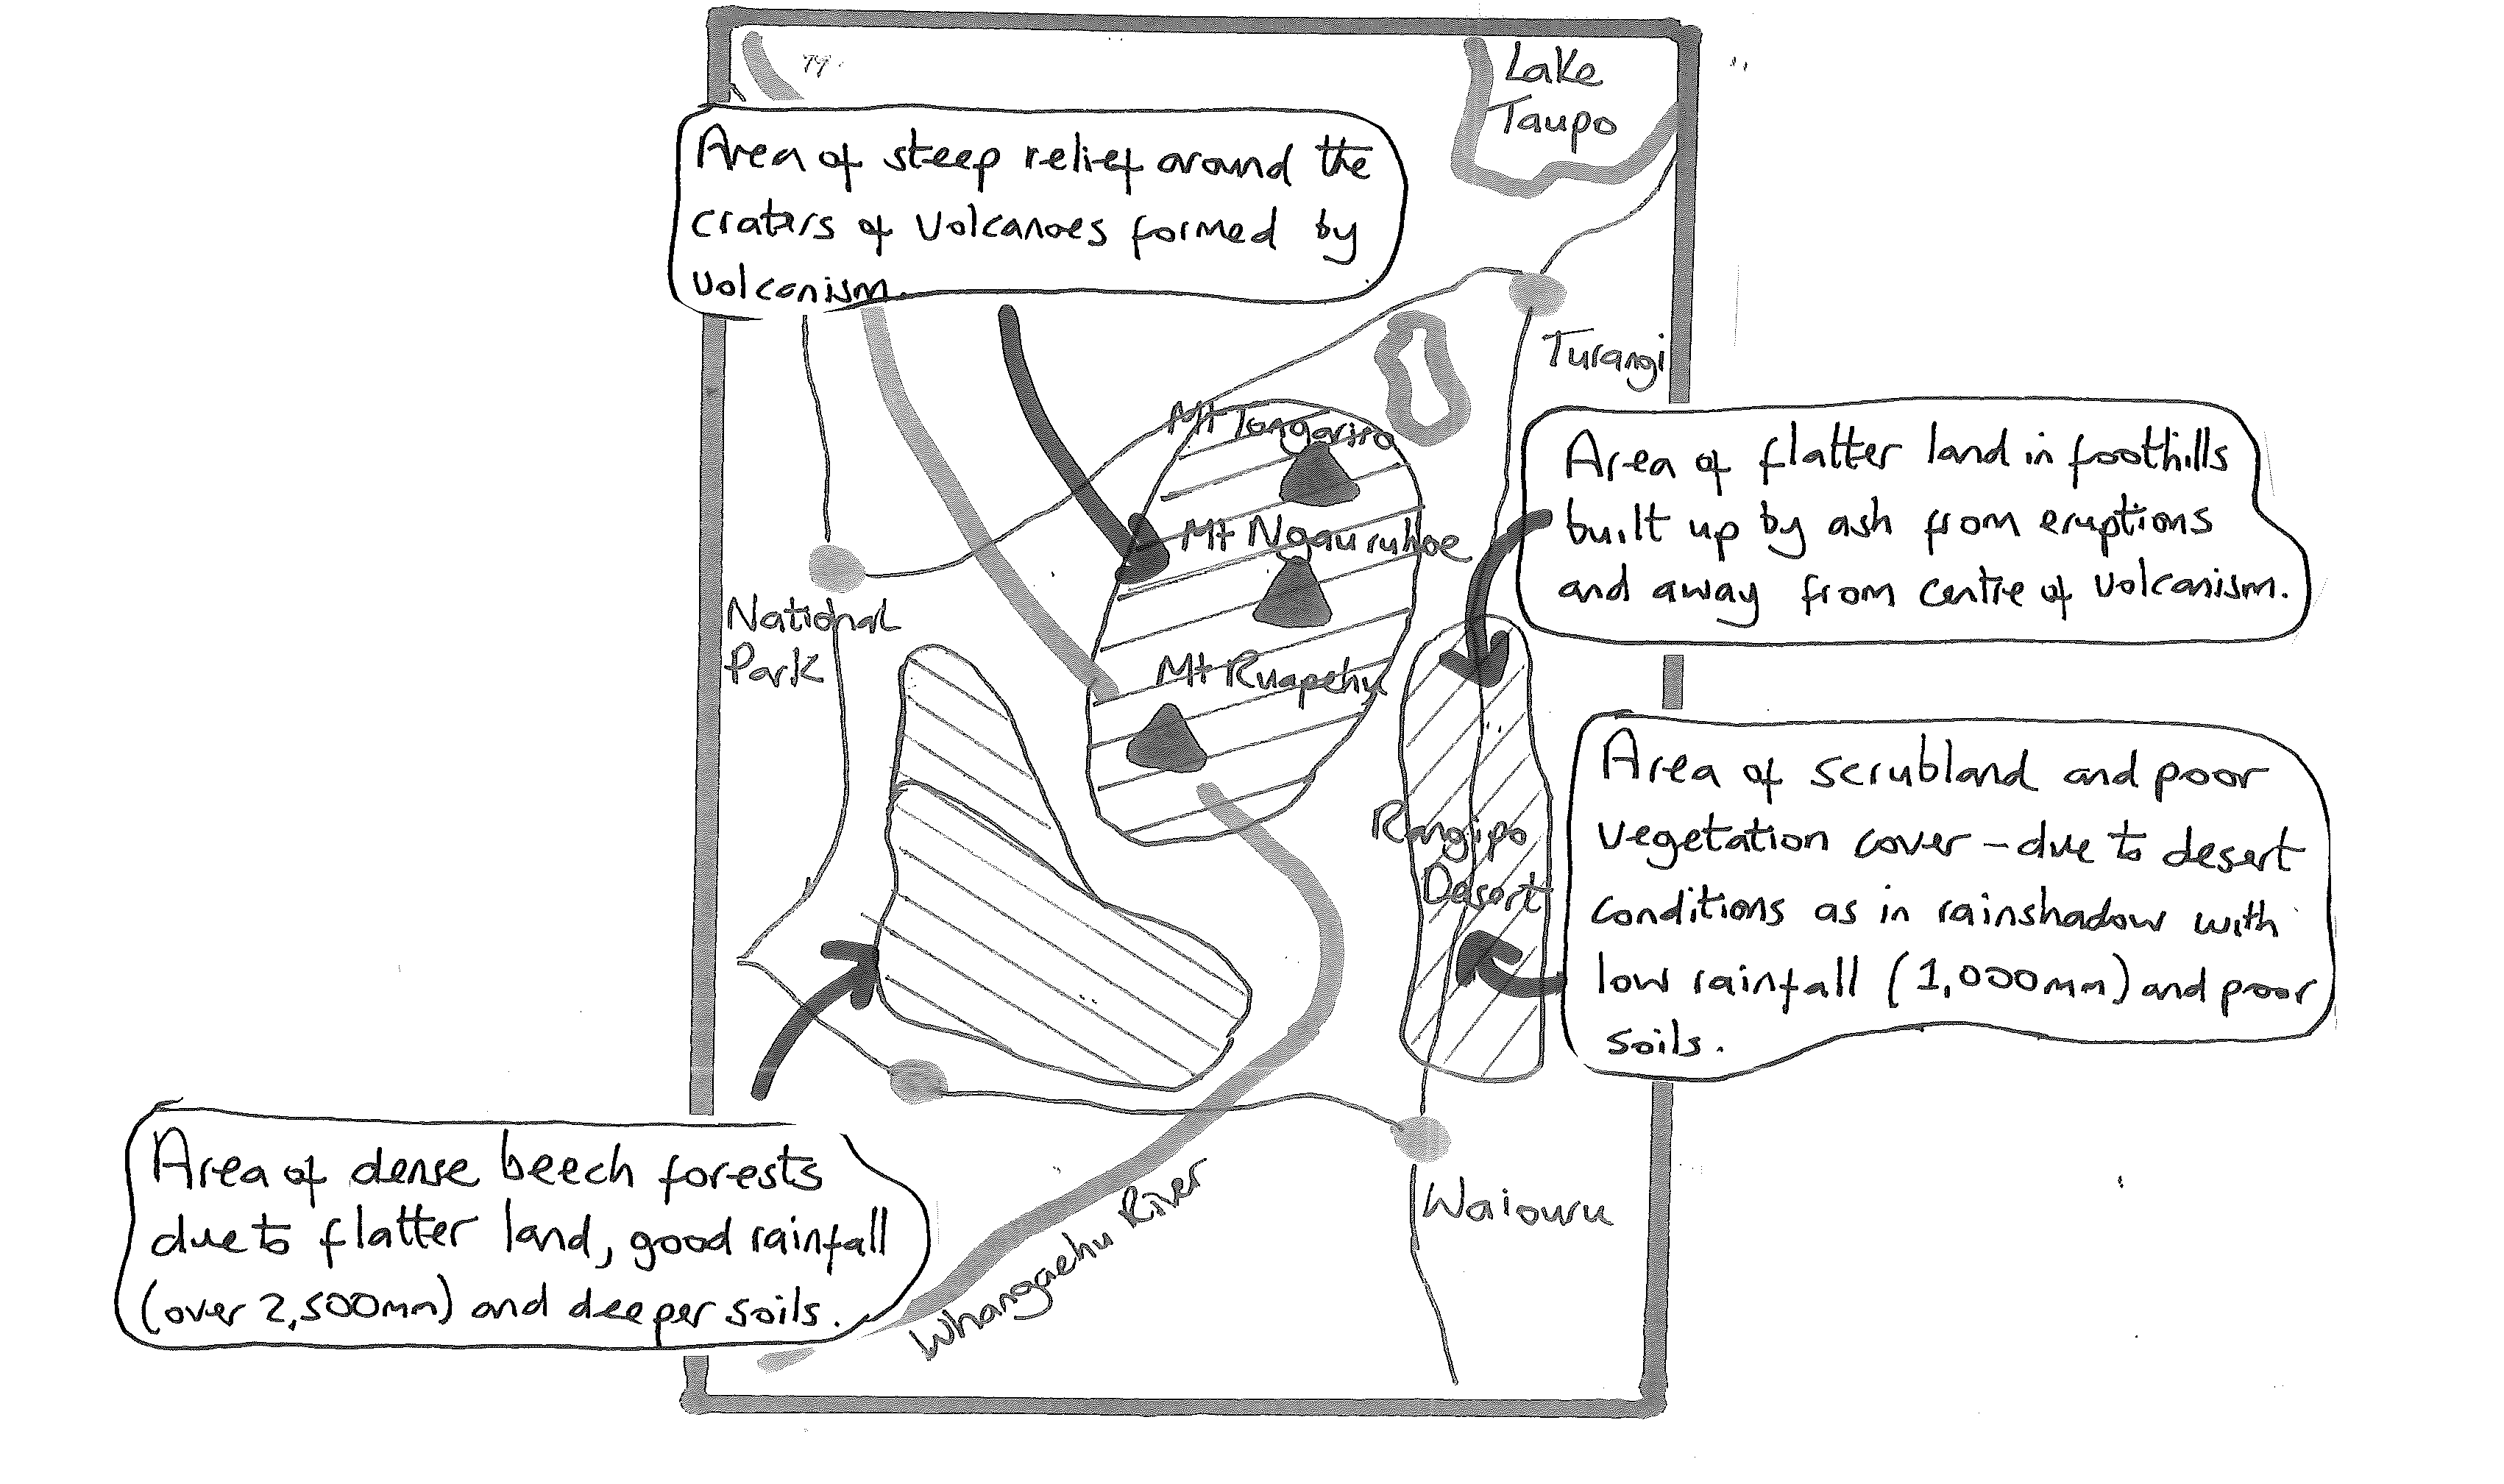 Lake
Taupo
Area of steep relief around the
craters of volcanoes formed by
volcanism.
Turangi
Mt Tongariro
Area of flatter land in foothills
built up by ash from eruptions
and away from centre of volcanism.
Mt Ngauruhoe
National
Park
Mt Ruapehu
Area of scrubland and poor
vegetation cover - due to desert
conditions as in rainshadow with
low rainfall (1,000mm) and poor
soils.
Rangipo
Desert
Area of dense beech forests
due to flatter land, good rainfall
(over 2,500mm) and deeper soils.
Waiouru
Whangaehu River